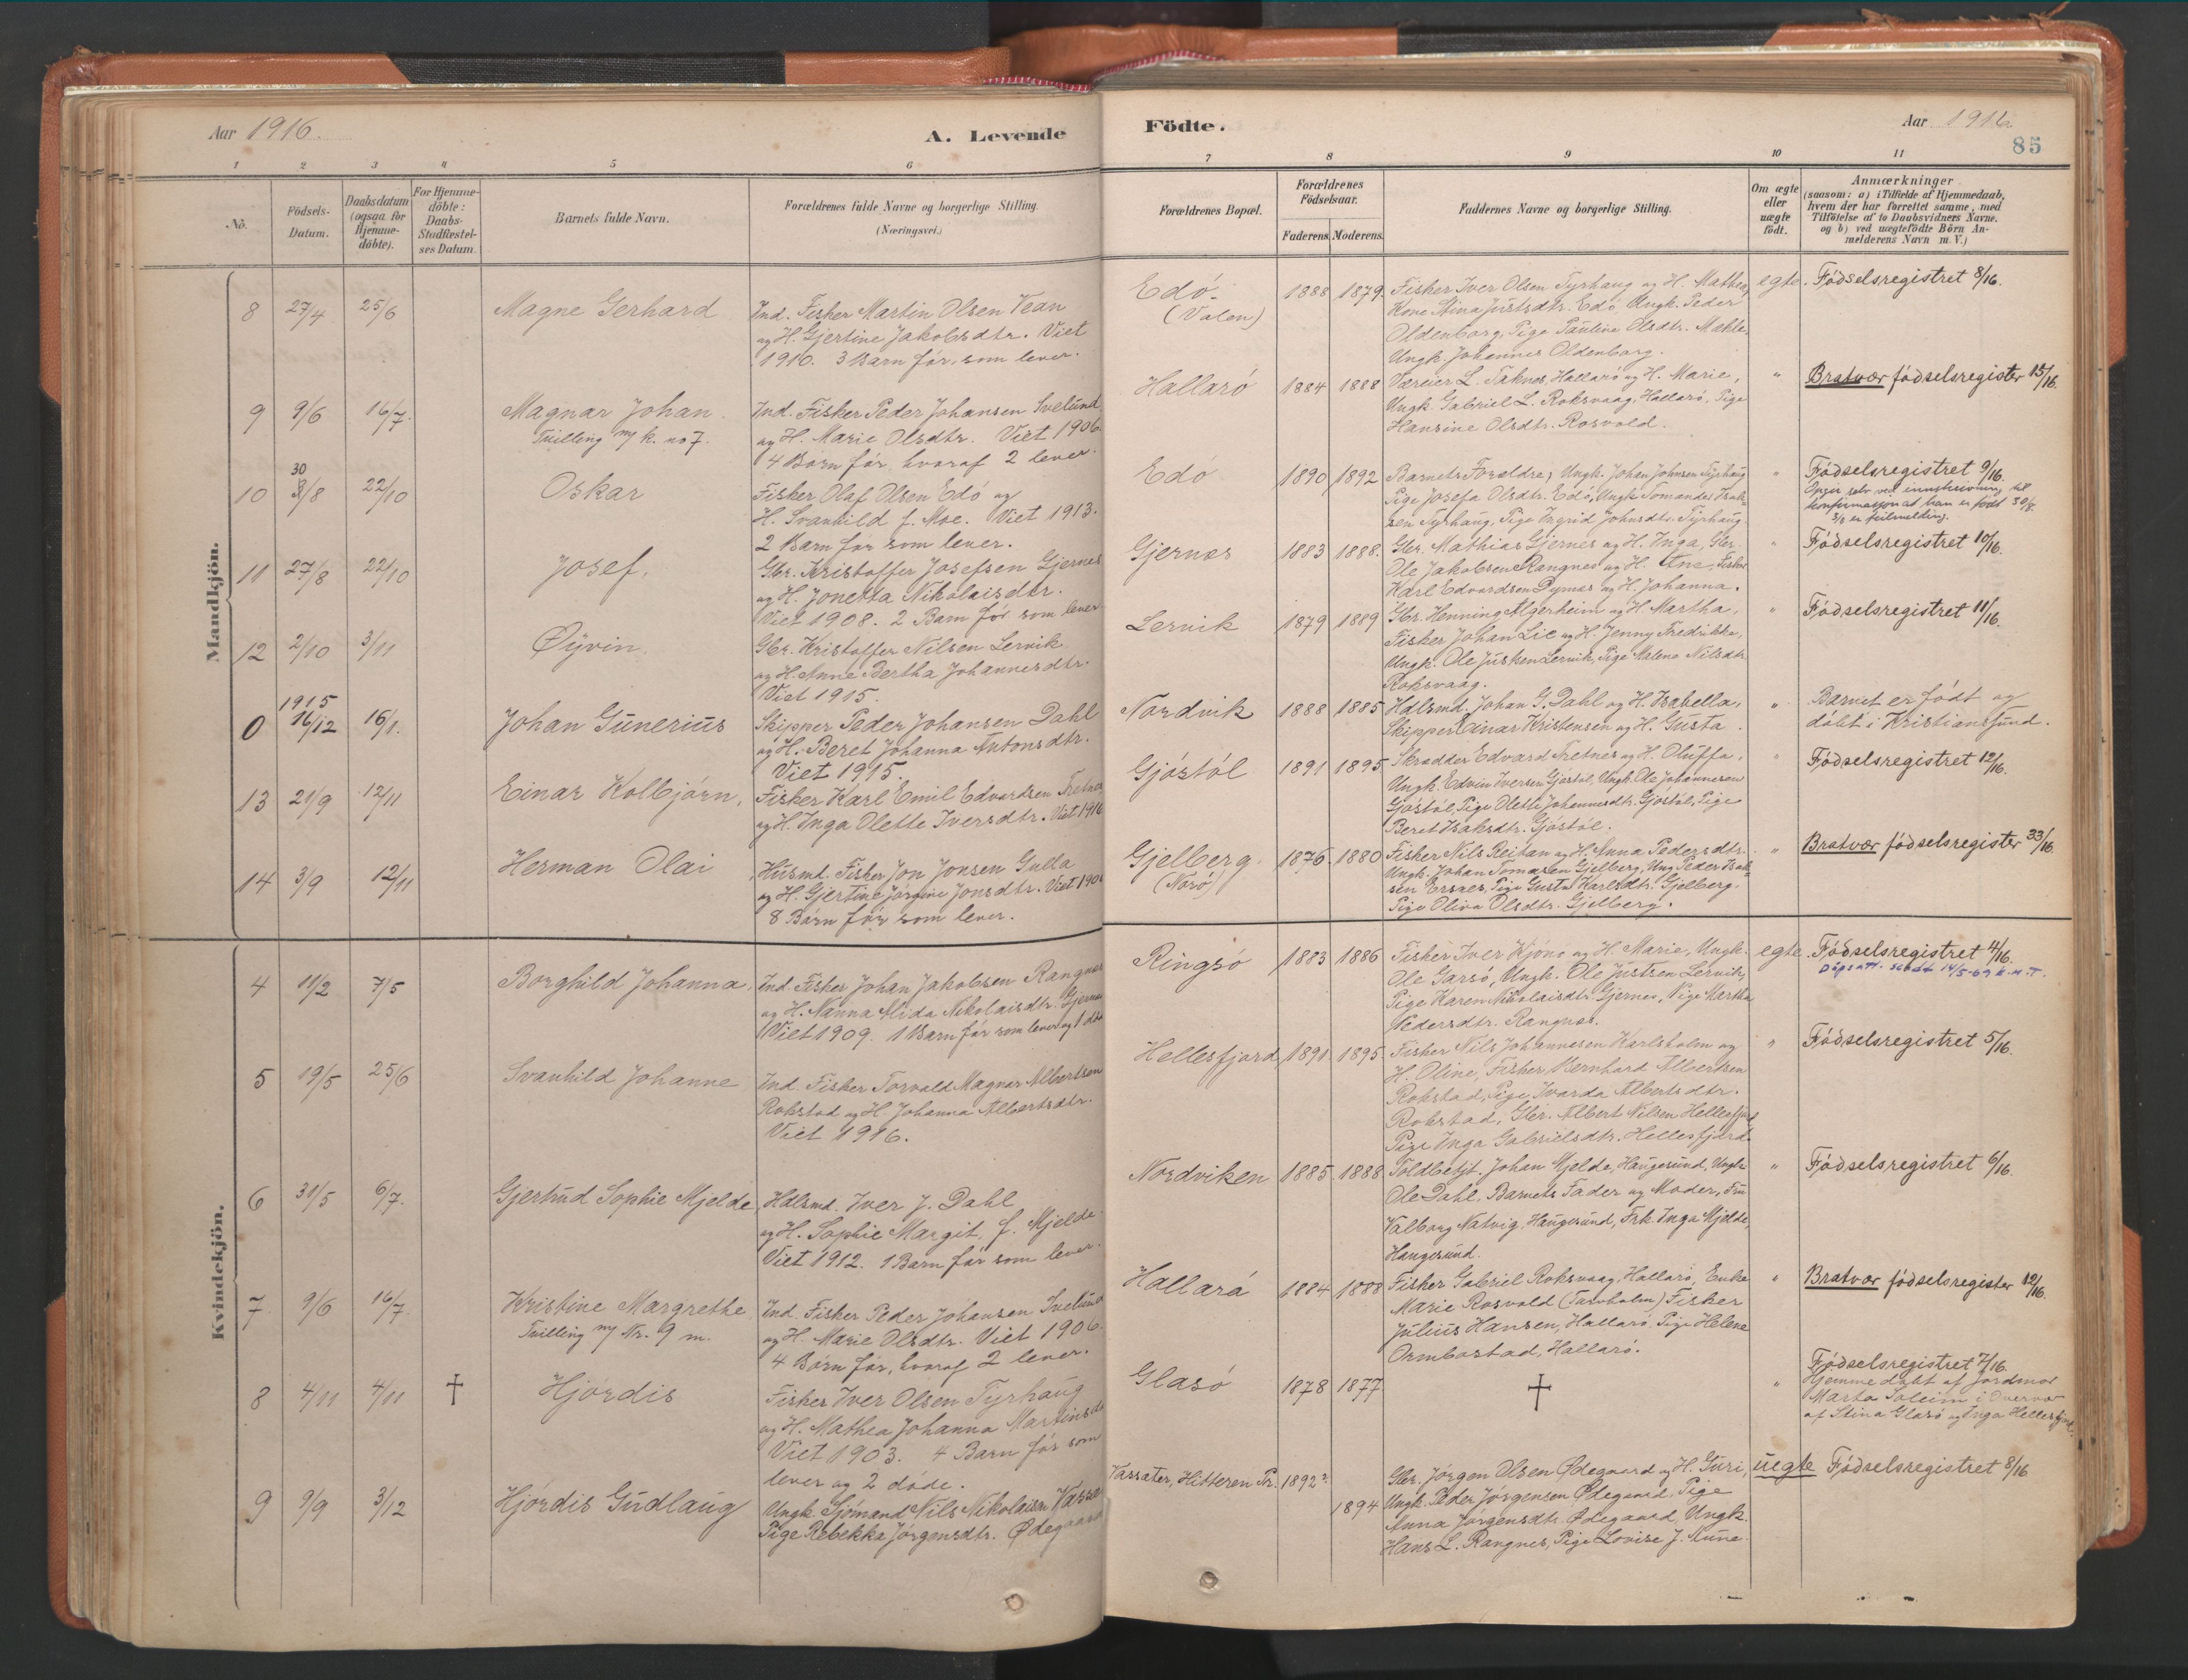 Aar 1916.
A. Levende
Födte.
Aar 1916
85
1 2 3 4 5 6
7 8 9 10 11
No.
Födsels-Datum.
Daabsdatum (ogsaa for Hjemme-döbte).
For Hjemme-döbte: Daabs-Stadfæstel-ses Datum.
Barnets fulde Navn.
Forældrenes fulde Navne og borgerlige Stilling.
(Næringsvei.)
Forældrenes Bopæl.
Forældrenes Födselsaar.
Faderens. Moderens.
Faddernes Navne og borgerlige Stilling.
Om ægte eller uægte födt.
Anmærkninger
(saasom: a) i Tilfælde af Hjemmedaab,
hvem der har forrettet samme, med
Tilföielse af to Daabsvidners Navne.
og b) ved uægtefödte Börn An-
melderens Navn m. V.)
Mandkjön.
8 27/4 25/6 Magne Gerhard
Ind. Fisker Martin Olsen Vean
og H. Gjertine Jakobsdtr. Viet
1910. 3 Barn før, som lever.
Edö.
(Valen)
1888 1879
Fisker Iver Olsen Tyrhaug og H. Mathea,
Kone Stina Justsdtr. Edö, Ungk. Peder
Oldenborg, Pige Pauline Olsdtr.
Ungk. Johannes Oldenborg.
egte. Födselsregistret 8/16.
9 9/6 16/7. Magnar Johan
Tvilling m/ k. no 7.
Ind. Fisker Peder Johansen Svelund
og H. Marie Olsdtr. Viet 1906.
4 Börn för, hvoraf 2 lever.
Hallarö 1884 1888
L. Taknes, Hallarö og H. Marie,
Ungk. Gabriel L. Roksvaag, Hallarö, Pige
Hansine Olsdtr. Rosvold.
" Bratvær födselsregister 15/16.
10 30 3/8 22/10 Oskar
Fisker Olaf Olsen Edö og
H. Svanhild f. Moe. Viet 1913.
2 Barn før som lever.
Edö 1890 1892
Barnets Forældre, Ungk. Johan Johnsen Tyrhaug
Pige Josefa Olsdtr. Edö, Ungk. Tomandes Isak-
sen Tyrhaug, Pige Ingrid Johnsdtr. Tyrhaug
" Födselsregistret 9/16.
Opgir selv ved innskrivning til
konfirmasjon at han er født 30/8.
3/8 er feilmelding.
11 27/8 22/10 Josef.
Gbr. Kristoffer Josefsen Gjernes
og H. Jonetta Nikolaisdtr.
Viet 1908. 2 Barn før som lever
Gjernes 1883 1888.
Gbr. Mathias Gjernes og H. Inga, Gbr.
Ole Jakobsen Rangnes og H. Ane, Fisker
Karl Edvardsen Dyrnes og H. Johanna.
" Födselsregistret 10/16.
12 2/10 3/11 Øyvin.
Gbr. Kristoffer Nilsen Lervik
og H. Anne Bertha Johannesdtr.
Viet 1915.
Lervik 1879 1889
Gbr. Henning Algerheim og H. Martha,
Fisker Johan Lie og H. Jenny Fredrikke,
Ungk. Ole Justsen Lervik, Pige Malena Nilsdtr.
Roksvaag.
" Födselsregistret 11/16.
0 1915 16/12 16/1. Johan Gunerius
Skipper Peder Johansen Dahl
og H. Beret Johanna Antonsdtr.
Viet 1915.
Nordvik 1888 1885
Hdlsmd. Johan G. Dahl og H. Isabella,
Skipper Einar Kristensen og H. Gusta.
" Barnet er født og
døbt i Kristiansund.
13 21/9 12/11 Einar Kolbjörn.
Fisker Karl Emil Edvardsen Tretnes
og H. Inga Olette Iversdtr. Viet 1916
Gjöstöl 1891 1895
Skrædder Edvard Tretnes og H. Oluffa,
Ungk. Edvin Iversen Gjöstöl, Ungk. Ole Johannesen
Gjöstöl, Pige Olette Johannesdtr. Gjöstöl, Pige
Beret Isaksdtr. Gjöstöl.
" Födselsregistret 12/16.
14 3/9 12/11 Herman Olai
Husmd. Fisker Jon Jonsen Gulla
og H. Gjertine Jörgine Jonsdtr. Viet 190
8 Börn før som lever.
Gjelberg.
(Norö)
1876 1880
Fisker Nils Reitan og H. Anna Pedersdtr.
Ungk. Johan Tomasen Gjelberg, Ung. Peder Isak-
sen Ersnes, Pige Gusta Karlsdtr. Gjelberg.
Pige Oliva Olsdtr. Gjelberg.
" Bratvær födselsregister 33/16.
Kvindekjön.
4 11/2 7/5 Borghild Johanna.
Ind. Fisker Johan Jakobsen Rangnes
og H. Nanna Alida Nikolaisdtr. Gjernes
Viet 1909. 1 Barn før som lever og 1 död
Ringsö 1883 1886
Fisker Iver Kjönö og H. Marie, Ungk.
Ole Garsö, Ungk. Ole Justsen Lervik,
Pige Karen Nikolaisdtr. Gjernes, Pige Martha
Pedersdtr. Rangnes.
egte. Födselsregistret 4/16.
Dåpsatt. sendt 14/5-69 K.M.T.
5 19/5 25/6 Svanhild Johanne
Ind. Fisker Torvald Magnar Albertsen
Rokstad og H. Johanna Albertsdtr.
Viet 1916.
Hellesfjord 1891. 1895.
Fisker Nils Johannesen Karlsholm og
H. Oline, Fisker Bernhard Albertsen
Rokstad, Pige Ivarda Albertsdtr.
Rokstad, Gbr. Albert Nilsen Hellesfjord
Pige Inga Gabrielsdtr. Hellesfjord.
" Födselsregistret 5/16.
6 31/5 6/7. Gjertrud Sophie Mjelde
Hdlsmd. Iver J. Dahl
og H. Sophie Margit, f. Mjelde.
Viet 1912. 1 Barn før som lever.
Nordviken 1885 1888
Toldbetjt. Johan Mjelde, Haugesund, Ungk.
Ole Dahl, Barnets Fader og Moder, Fru
Valborg Natvig, Haugesund, Frk. Inga Mjelde,
Haugesund.
" Födselsregistret 6/16.
7. 9/6 16/7. Kristine Margrethe
Tvilling m/ Nr. 9 m.
Ind. Fisker Peder Johansen Svelund
og H. Marie Olsdtr. Viet 1906.
4 Börn før, hvoraf 2 lever.
Hallarö 1884 1888
Fisker Gabriel Roksvaag, Hallarö, Enke
Marie Rosvold (Tarvholm) Fisker
Julius Hansen, Hallarö. Pige Helene
Ormbostad, Hallarö.
" Bratvær födselsregister 12/16.
8 4/11 4/11 † Hjördis
Fisker Iver Olsen Tyrhaug
og H. Mathea Johanna Martinsd
Viet 1903. 4 Barn før som
lever og 2 döde.
Glasö 1878 1877
†
" Födselsregistret 7/16.
Hjemmedøbt af Jordmor
Marta Soleim i Overvær
af Stina Glasö og Inga Hellesfjord.
9 9/9 3/12 Hjördis Gudlaug
Ungk. Sjömand Nils Nikolaisn Vasse
Pige Rebekka Jörgensdtr. Ødegaard
Vassæter, Hitteren Pr. 1892?
1894
Gbr. Jörgen Olsen Ødegaard og H. Guri,
Ungk. Peder Jörgensen Ødegaard, Pige
Anna Jörgensdtr. Ødegaard, Ungk.
Hans L. Rangnes, Pige Lovise J. Aune.
uegte Födselsregistret 8/16